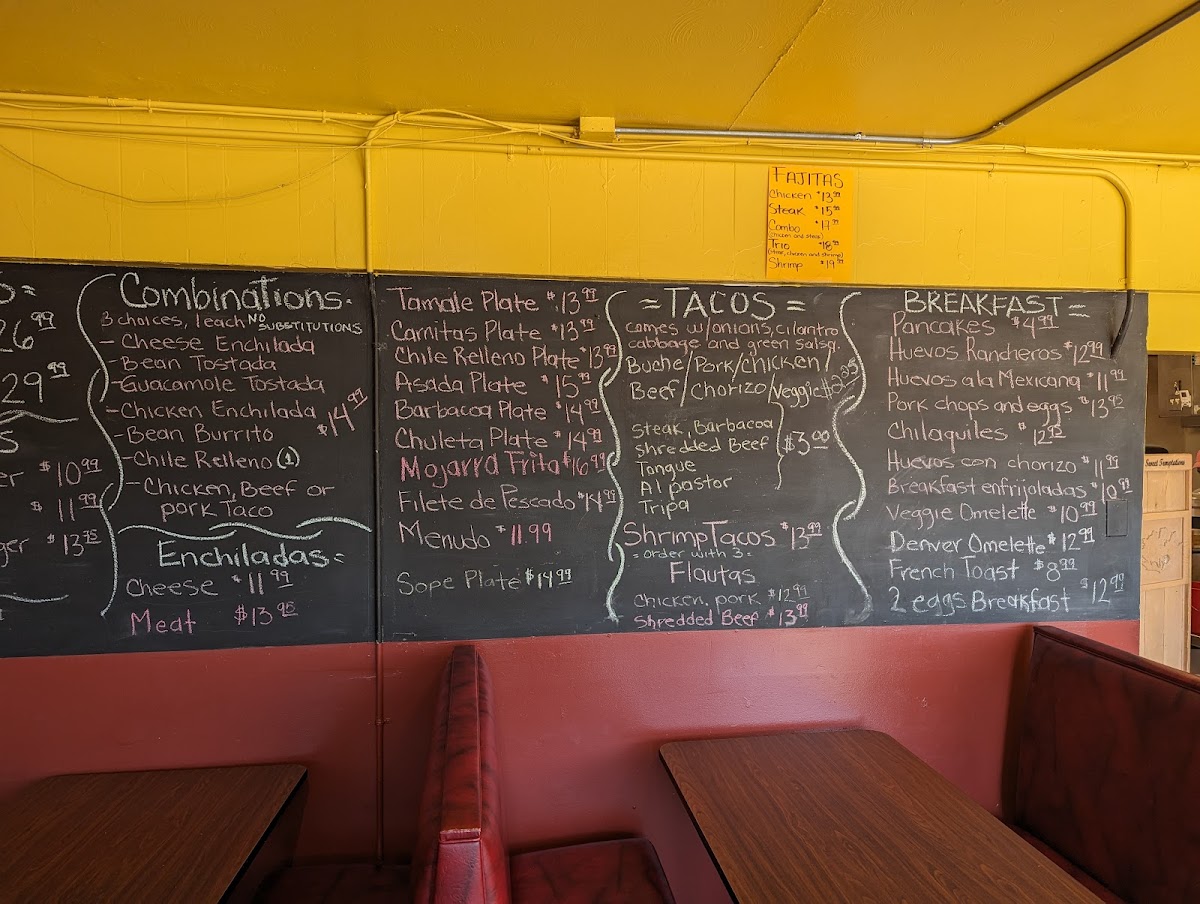 FAJITAS
Chicken $13.99
Steak $15.99
Combo $17.99
(chicken and steak)
Trio $18.99
(steak, chicken and shrimp)
Shrimp $19.99
26.99
29.99
$10.99
$11.99
$13.95
Combinations.
3 choices, 1 each NO SUBSTITUTIONS
- Cheese Enchilada
- Bean Tostada
- Guacamole Tostada
- Chicken Enchilada $14.99
- Bean Burrito
- Chile Relleno (1)
- Chicken, Beef or
pork Taco
Enchiladas =
Cheese $11.99
Meat $13.95
Tamale Plate $13.99
Carnitas Plate $13.99
Chile Relleno Plate $13.99
Asada Plate $15.99
Barbacoa Plate $14.99
Chuleta Plate $14.99
Mojarra Frita $16.99
Filete de Pescado $14.99
Menudo $11.99
Sope Plate $14.99
= TACOS =
comes w/onions, cilantro
cabbage and green salsa.
Buche/Pork/Chicken/
Beef/Chorizo/Veggie
Steak, Barbacoa
Shredded Beef $3.00
Tongue
Al pastor
Tripa
Shrimp Tacos $13.99
= order with 3 =
Flautas
Chicken, pork $12.99
Shredded Beef $13.99
BREAKFAST =
Pancakes $4.99
Huevos Rancheros $12.99
Huevos ala Mexicana $11.99
Pork chops and eggs $13.95
Chilaquiles $12.95
Huevos con chorizo $11.95
Breakfast enfrijoladas $10.99
Veggie Omelette $10.99
Denver Omelette $12.99
French Toast $8.99
2 eggs Breakfast $12.99
Sweet Temptations